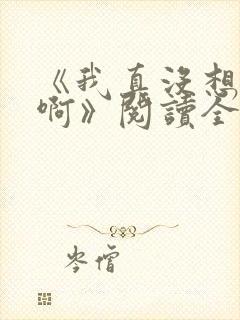 《我真没想
啊》閱讀全
岑僧